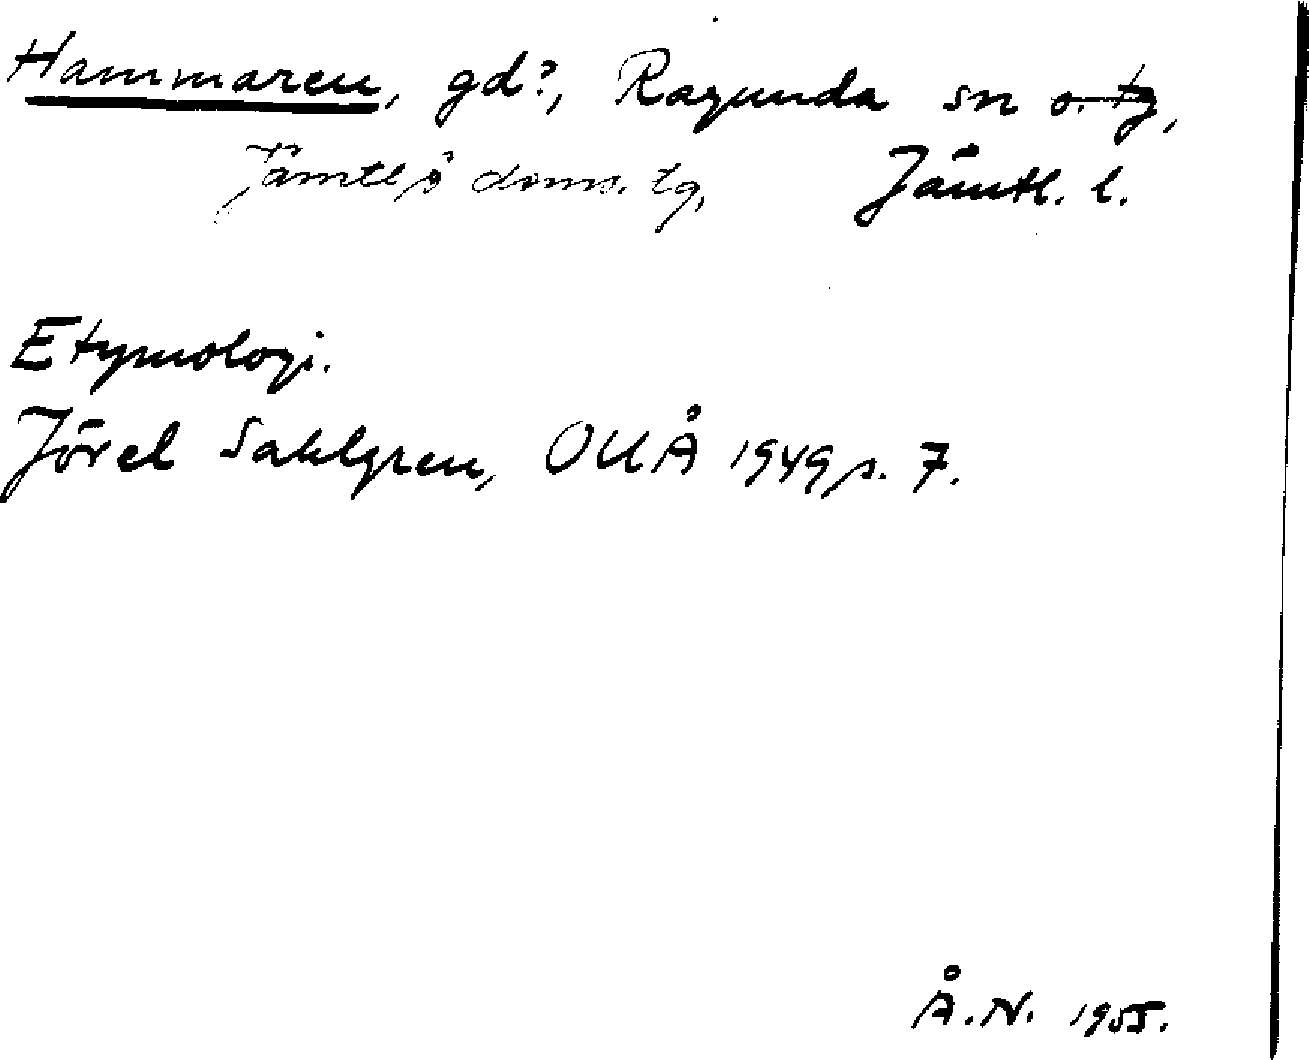 Hammaren, gd?, Ragunda sn o. tg,
Jämtl. ö doms. tg, Jämtl. l.
Etymologi.
Jöran Sahlgren, OUÅ 1949 s. 7.
Å.N. 1955.